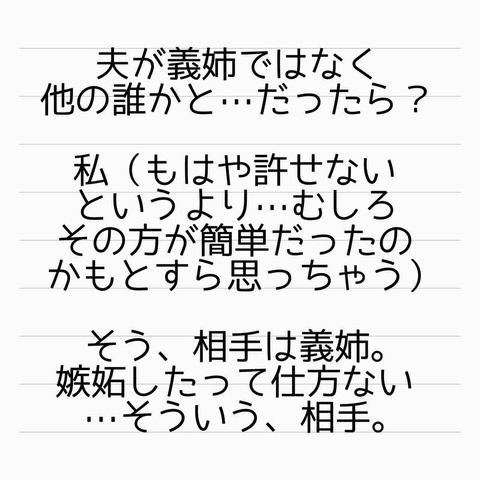 夫が義姉ではなく
他の誰かと…だったら？
私（もはや許せない
というより…むしろ
その方が簡単だったの
かもとすら思っちゃう）
そう、相手は義姉。
嫉妬したって仕方ない
…そういう、相手。